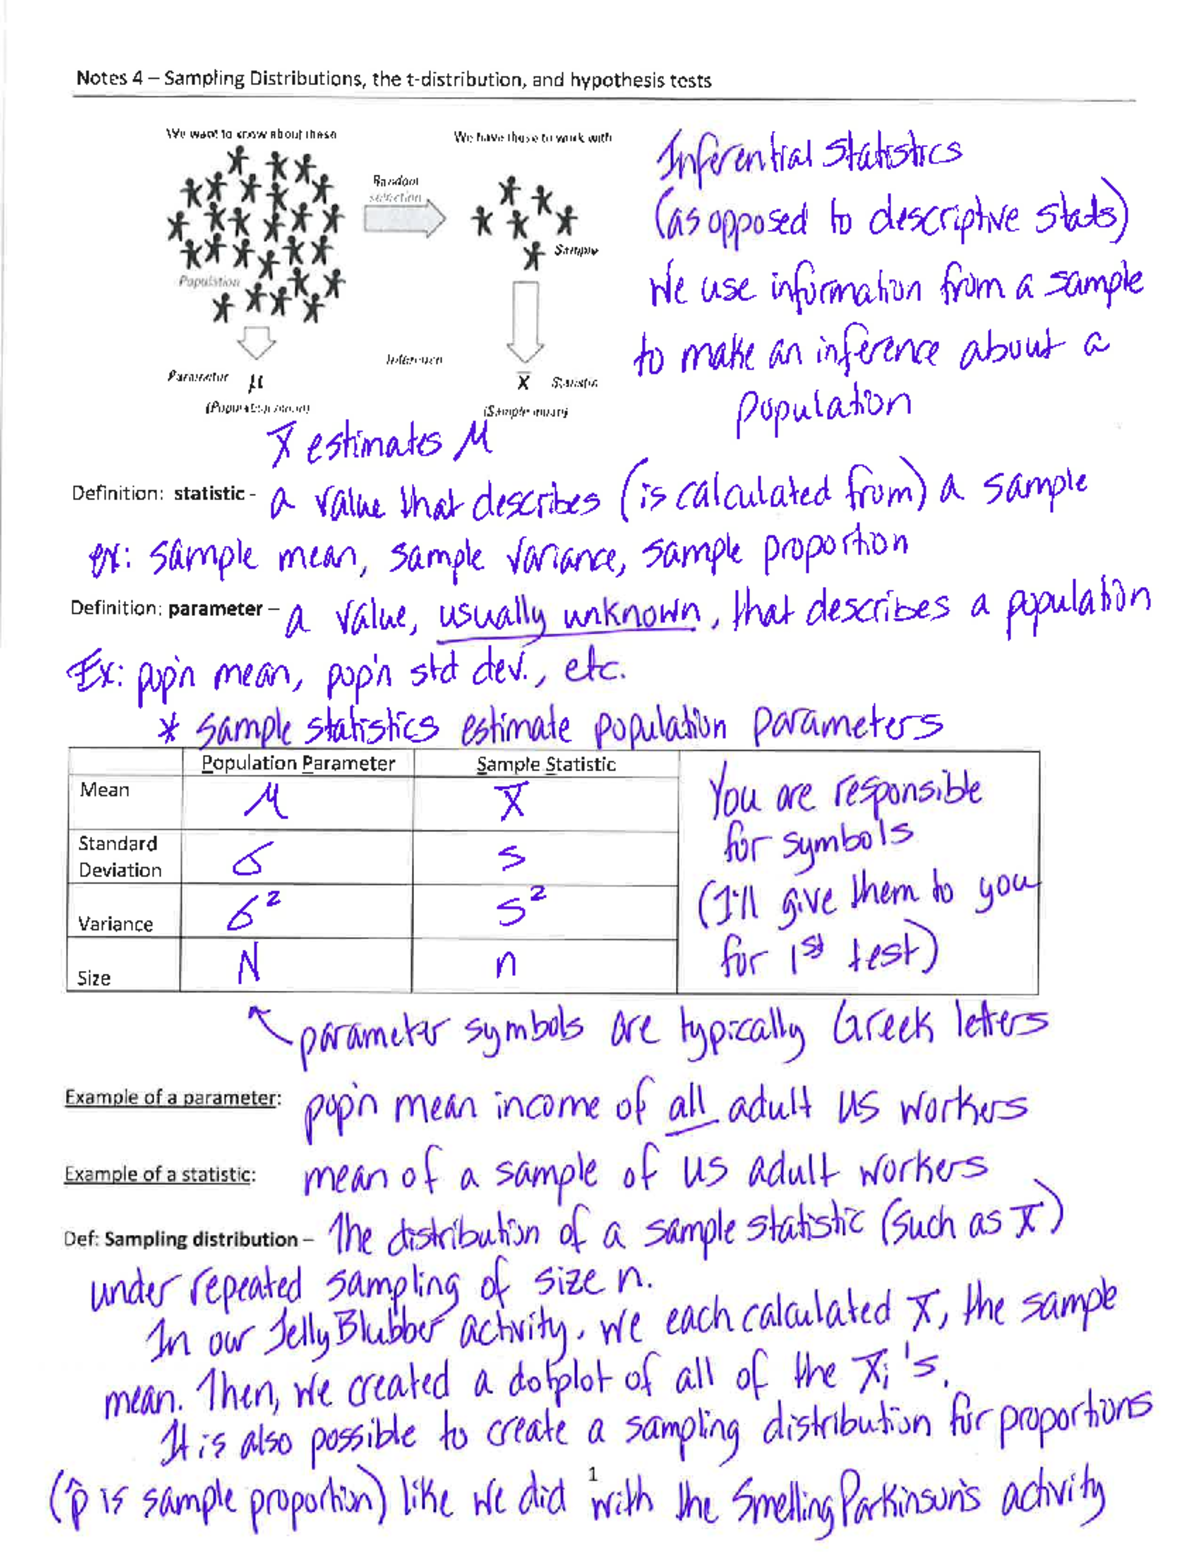 Notes 4 – Sampling Distributions, the t-distribution, and hypothesis tests
We want to know about these
We have these to work with
Random
selection
Population
Sample
Inference
Parameter μ
(Population mean)
x̄ Statistic
(Sample mean)
Inferential Statistics
(as opposed to descriptive stats)
We use information from a sample
to make an inference about a
population
X̄ estimates μ
Definition: statistic - a value that describes (is calculated from) a sample
ex: sample mean, sample variance, sample proportion
Definition: parameter – a value, usually unknown, that describes a population
Ex: pop'n mean, pop'n std dev., etc.
* sample statistics estimate population parameters
Population Parameter Sample Statistic
Mean μ X̄
Standard
Deviation σ s
Variance σ² s²
Size N n
You are responsible
for symbols
(I'll give them to you
for 1st test)
parameter symbols are typically Greek letters
Example of a parameter: pop'n mean income of all adult US workers
Example of a statistic: mean of a sample of US adult workers
Def: Sampling distribution – The distribution of a sample statistic (such as X̄)
under repeated sampling of size n.
In our Jelly Blubber activity, we each calculated X̄, the sample
mean. Then, we created a dotplot of all of the X̄i's.
It is also possible to create a sampling distribution for proportions
(p̂ is sample proportion) like we did with the Smelling Parkinson's activity
1